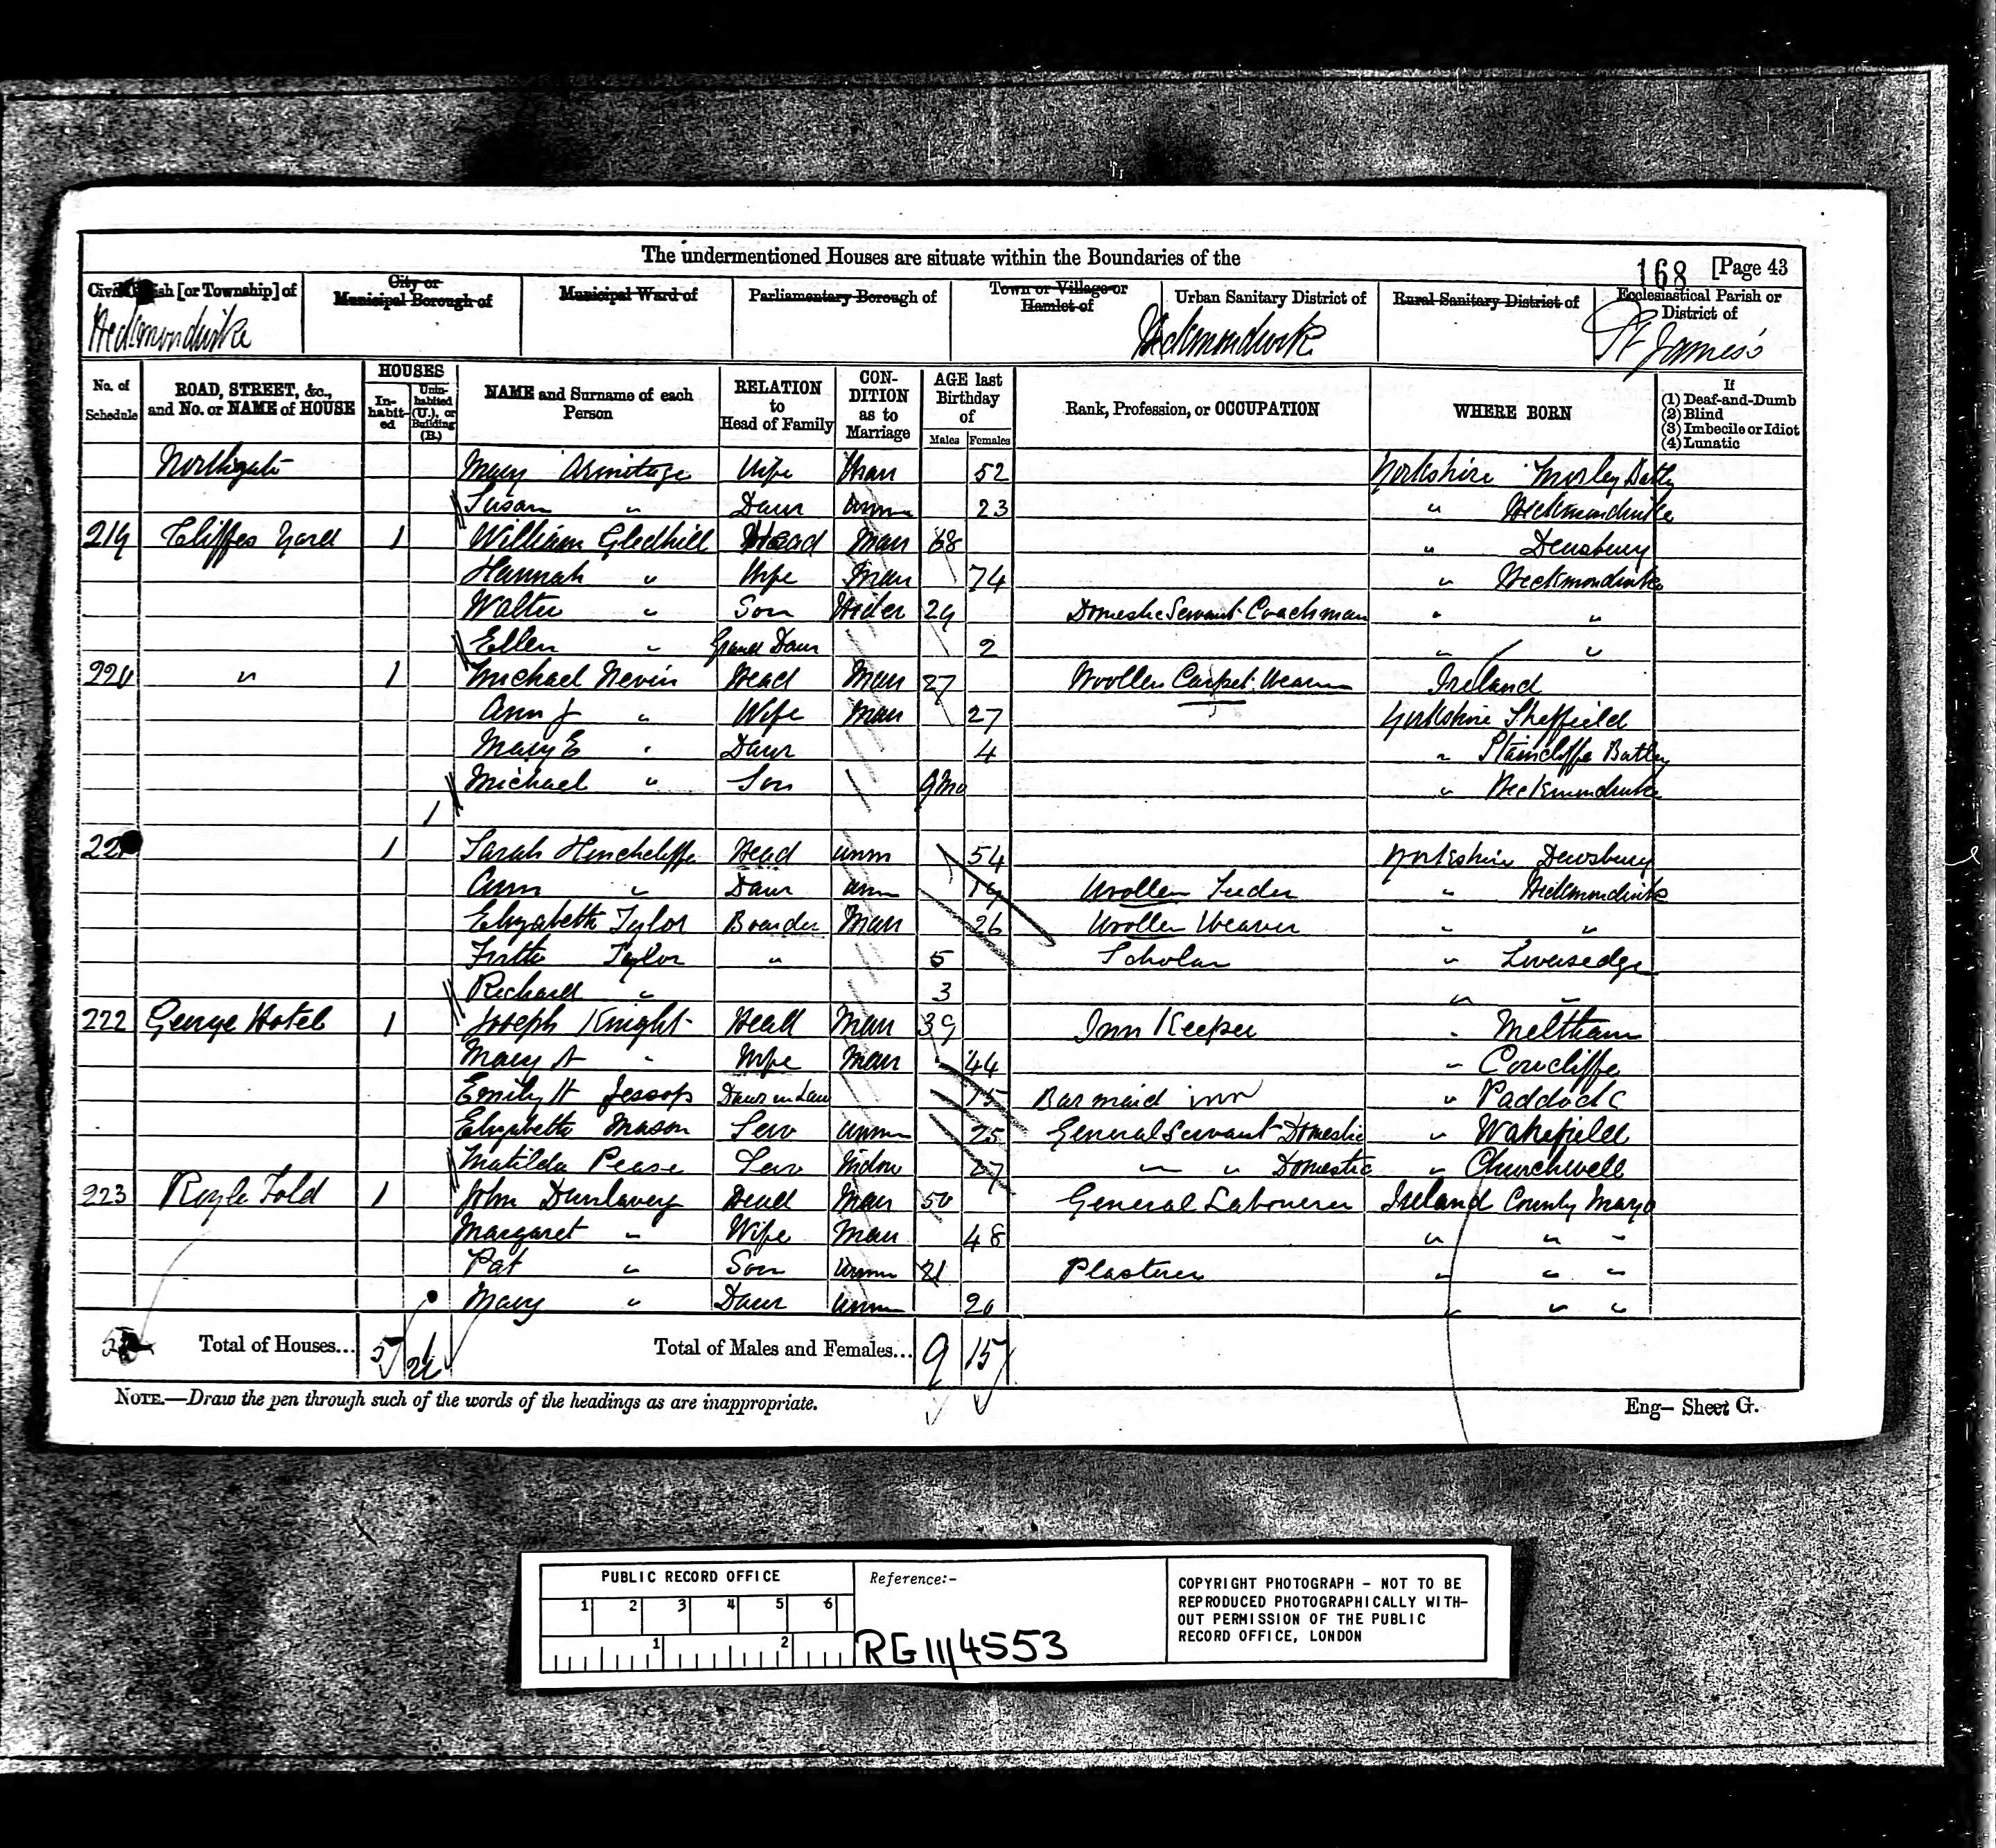 The undermentioned Houses are situate within the Boundaries of the
168 [Page 43
Civil Parish [or Township] of
City or Municipal Borough of
Municipal Ward of
Parliamentary Borough of
Town or Village or Hamlet of
Urban Sanitary District of
Rural Sanitary District of
Ecclesiastical Parish or District of
Heckmondwike Heckmondwike St James's
No. of Schedule
ROAD, STREET, &c., and No. or NAME of HOUSE
HOUSES
In-habit-ed
Unin-habited (U.), or Building (B.)
NAME and Surname of each Person
RELATION to Head of Family
CON-DITION as to Marriage
AGE last Birthday of
Males Females
Rank, Profession, or OCCUPATION
WHERE BORN
If
(1) Deaf-and-Dumb
(2) Blind
(3) Imbecile or Idiot
(4) Lunatic
Northgate Mary Armitage Wife Mar 52 Yorkshire Morley Batley
Susan " Daur Unm 23 " Heckmondwike
219 Cliffes Yard 1 William Gledhill Head Mar 68 " Dewsbury
Hannah " Wife Mar 74 " Heckmondwike
Walter " Son Wider 29 Domestic Servant Coachman " "
Ellen " Grand Daur 2 " "
220 " 1 Michael Nevin Head Mar 27 Woollen Carpet Weaver Ireland
Ann J " Wife Mar 27 Yorkshire Sheffield
Mary E " Daur 4 " Staincliffe Batley
Michael " Son 9mo " Heckmondwike
1
1 Sarah Hinchcliffe Head Unm 54 Yorkshire Dewsbury
Ann " Daur Unm 19 Woollen Feeder " Heckmondwike
Elizabeth Tylor Boarder Mar 26 Woollen Weaver " "
Firth Taylor " 5 Scholar " Liversedge
Richard " 3 " "
222 George Hotel 1 Joseph Knight Head Mar 39 Inn Keeper " Meltham
Mary A " Wife Mar 44 " Cowcliffe
Emily H Jessop Daur in Law 15 Barmaid inn " Paddock
Elizabeth Mason Serv Unm 25 General Servant Domestic " Wakefield
Matilda Pease Serv Widow 27 " " Domestic " Churchwell
223 Fold 1 John Dunlavey Head Mar 50 General Labourer Ireland County Mayo
Margaret " Wife Mar 48 " " "
Pat " Son Unm 21 Plasterer " " "
Mary " Daur Unm 20 " " "
Total of Houses... 5 Total of Males and Females... 9 15
NOTE.—Draw the pen through such of the words of the headings as are inappropriate.
Eng- Sheet G.
PUBLIC RECORD OFFICE
1 2 3 4 5 6
1 2
Reference:-
RG 11/4553
COPYRIGHT PHOTOGRAPH - NOT TO BE
REPRODUCED PHOTOGRAPHICALLY WITH-
OUT PERMISSION OF THE PUBLIC
RECORD OFFICE, LONDON